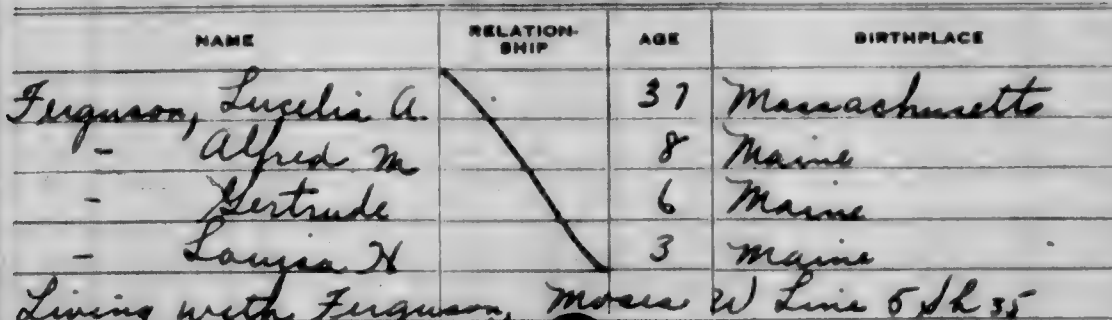 NAME RELATION-SHIP AGE BIRTHPLACE
Ferguson, Lucelia A. 37 Massachusetts
- Alfred M 8 Maine
- Gertrude 6 Maine
- Louisa H 3 Maine
Living with Ferguson, Moses W Line 5 Sh 35